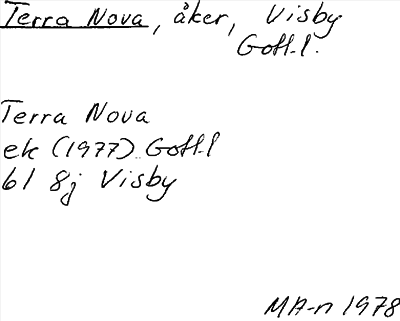 Terra Nova, åker, Visby
Gotl.l.
Terra Nova
ek (1977) Gotl.l
bl 8j Visby
MA-n 1978